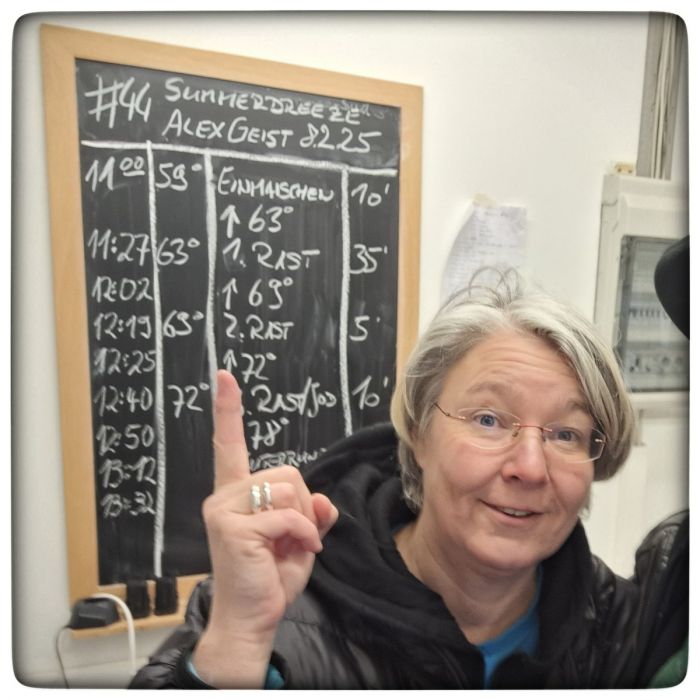 #44 SUMMERDREEZE
ALEX GEIST 8.2.25
11:00 59° EINMAISCHEN 10'
↑ 63°
11:27 63° 1. RAST 35'
12:02 ↑ 69°
12:19 69° 2. RAST 5'
12:25 ↑ 72°
12:40 72° . RAST/JOD 10'
12:50 78°
13:12
13:32